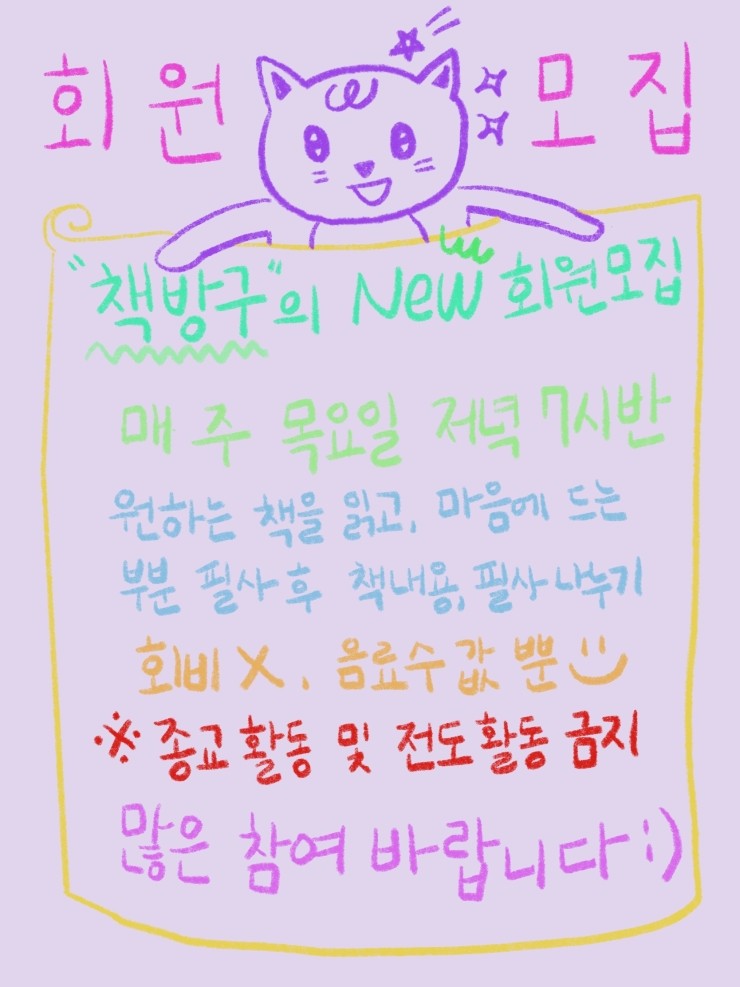 회원 모집
"책방구"의 New 회원모집
매주 목요일 저녁 7시반
원하는 책을 읽고, 마음에 드는
부분 필사 후 책내용, 필사 나누기
회비 X, 음료수 값 뿐 :)
※ 종교 활동 및 전도 활동 금지
많은 참여 바랍니다 :)